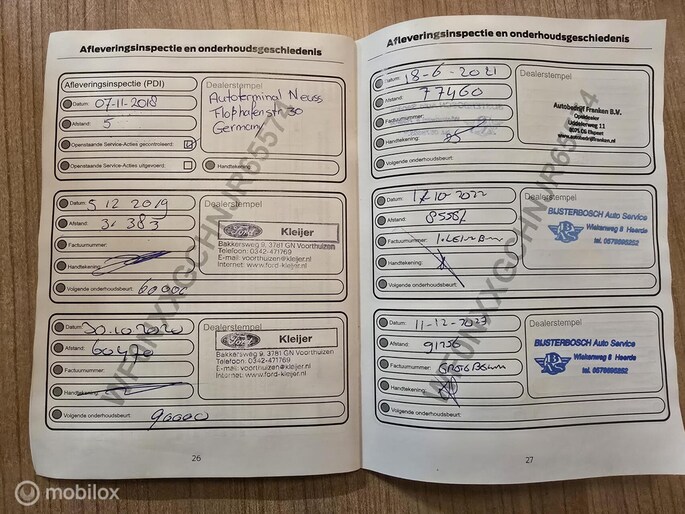 Afleveringsinspectie en onderhoudsgeschiedenis
Afleveringsinspectie (PDI)
Datum: 07-11-2018
Afstand: 5
Openstaande Service-Acties gecontroleerd:
Openstaande Service-Acties uitgevoerd:
Dealerstempel
Autoterminal Neuss
Floßhafenstr 30
Germany
Handtekening:
Datum: 5 12 2019
Afstand: 31 383
Factuurnummer:
Handtekening:
Volgende onderhoudsbeurt: 60000
Dealerstempel
Ford Kleijer
Bakkersweg 9, 3781 GN Voorthuizen
Telefoon: 0342-471769
E-mail: voorthuizen@kleijer.nl
Internet: www.ford-kleijer.nl
Datum: 30.10 2020
Afstand: 60490
Factuurnummer:
Handtekening:
Volgende onderhoudsbeurt: 90000
Dealerstempel
Ford Kleijer
Bakkersweg 9, 3781 GN Voorthuizen
Telefoon: 0342-471769
E-mail: voorthuizen@kleijer.nl
Internet: www.ford-kleijer.nl
26
Afleveringsinspectie en onderhoudsgeschiedenis
Datum: 18-6-2021
Afstand: 77460
Factuurnummer:
Handtekening:
Volgende onderhoudsbeurt:
Dealerstempel
Autobedrijf Franken B.V.
Opeldealer
Uddelerweg 11
www.autobedrijffranken.nl
Datum: 17-10-2022
Afstand:
Factuurnummer:
Handtekening:
Volgende onderhoudsbeurt:
Dealerstempel
BIJSTERBOSCH Auto Service
Wiekenweg 8 Heerde
tel. 0578695252
Datum: 11-12-2023
Afstand: 91256
Factuurnummer:
Handtekening:
Volgende onderhoudsbeurt:
Dealerstempel
BIJSTERBOSCH Auto Service
Wiekenweg 8 Heerde
tel. 0578695252
27
mobilox